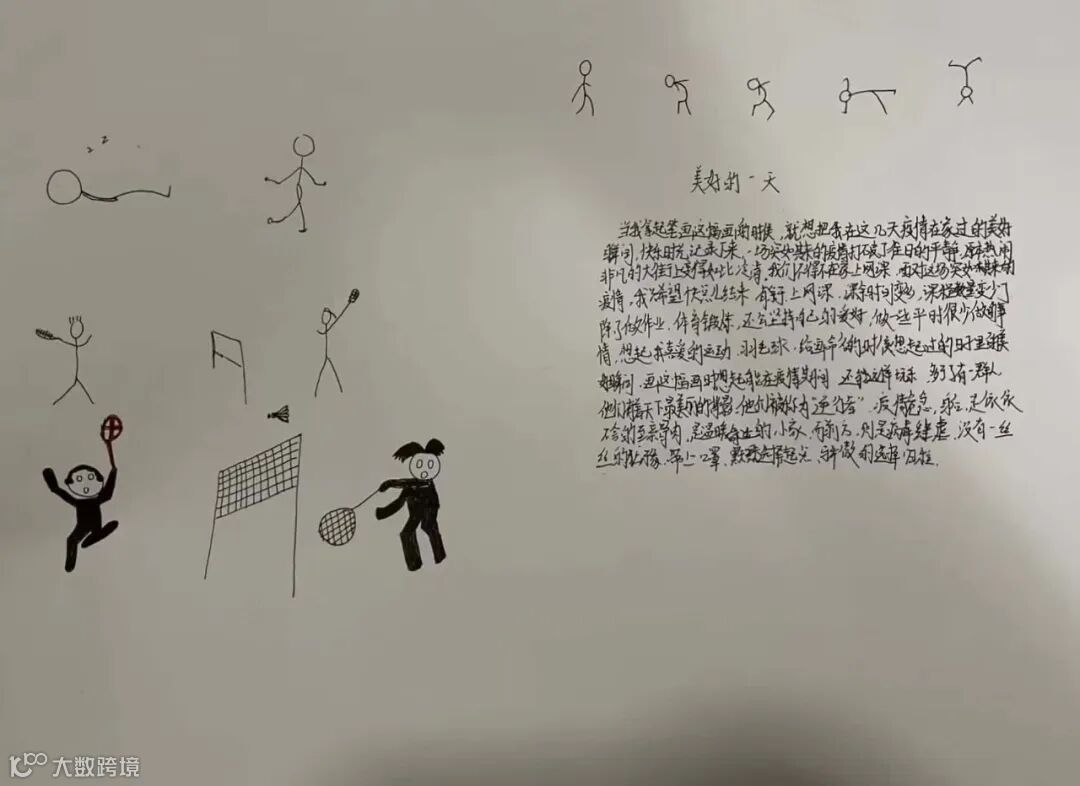 z z
美好的一天
当我拿起笔画这幅画的时候,就想把我在这几天疫情在家过的美好
瞬间,快乐时光记录下来,一场突如其来的疫情打破了往日的平静,原本热闹
非凡的大街上变得如此冷清,我们不得不在家上网课,面对这场突如其来的
疫情,我希望快点儿结束,上网课,课余时间变多,课程数量变少了
除了做作业,体育锻炼,还会坚持自己的爱好,做一些平时很少做的事
情,想起我喜爱的运动,羽毛球,给画命名的时候想起过的日子里
瞬间,画这幅画时想起能在疫情期间,还能这样玩乐,多亏了有一群人
他们是天下最美丽的,他们被称为“逆行者”,疫情危急,身后,是依依
不舍的至亲骨肉,是温暖的小家,而前方,则是病毒肆虐,没有一丝
丝的犹豫,带上口罩,默默
大数跨境